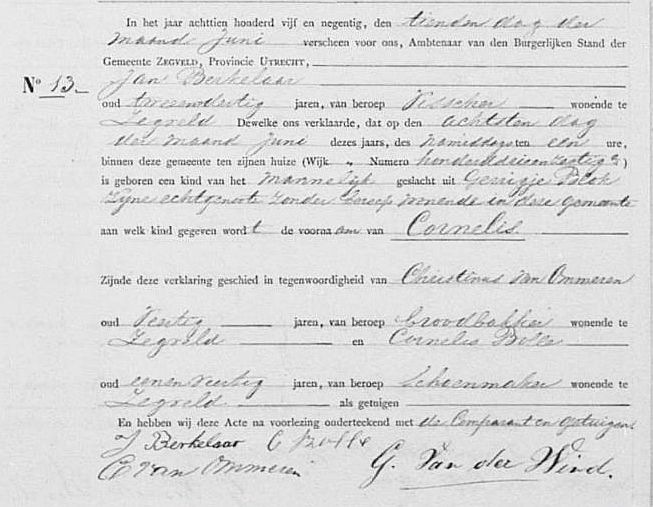 In het jaar achttien honderd vijf en negentig, den tienden dag der
maand Juni verscheen voor ons, Ambtenaar van den Burgerlijken Stand der
Gemeente ZEGVELD, Provincie UTRECHT,
No 13 Jan Berkelaar
oud tweeendertig jaren, van beroep Visscher wonende te
Zegveld Dewelke ons verklaarde, dat op den achtsten dag
der maand Juni dezes jaars, des namiddags ten een ure,
binnen deze gemeente ten zijnen huize (Wijk „ Numero honderddrieenzestig )
is geboren een kind van het Mannelijk geslacht uit Gerrigje Blok
Zijne echtgenoote zonder beroep wonende in deze gemeente
aan welk kind gegeven wordt de voornaam van Cornelis
Zijnde deze verklaring geschied in tegenwoordigheid van Christinus van Ommeren
oud Veertig jaren, van beroep broodbakker wonende te
Zegveld en Cornelis Bolle
oud eenenveertig jaren, van beroep Schoenmaker wonende te
Zegveld als getuigen
En hebben wij deze Acte na voorlezing onderteekend met de Comparant en getuigen.
J Berkelaar C Bolle
C van Ommeren G. Van der Wind.